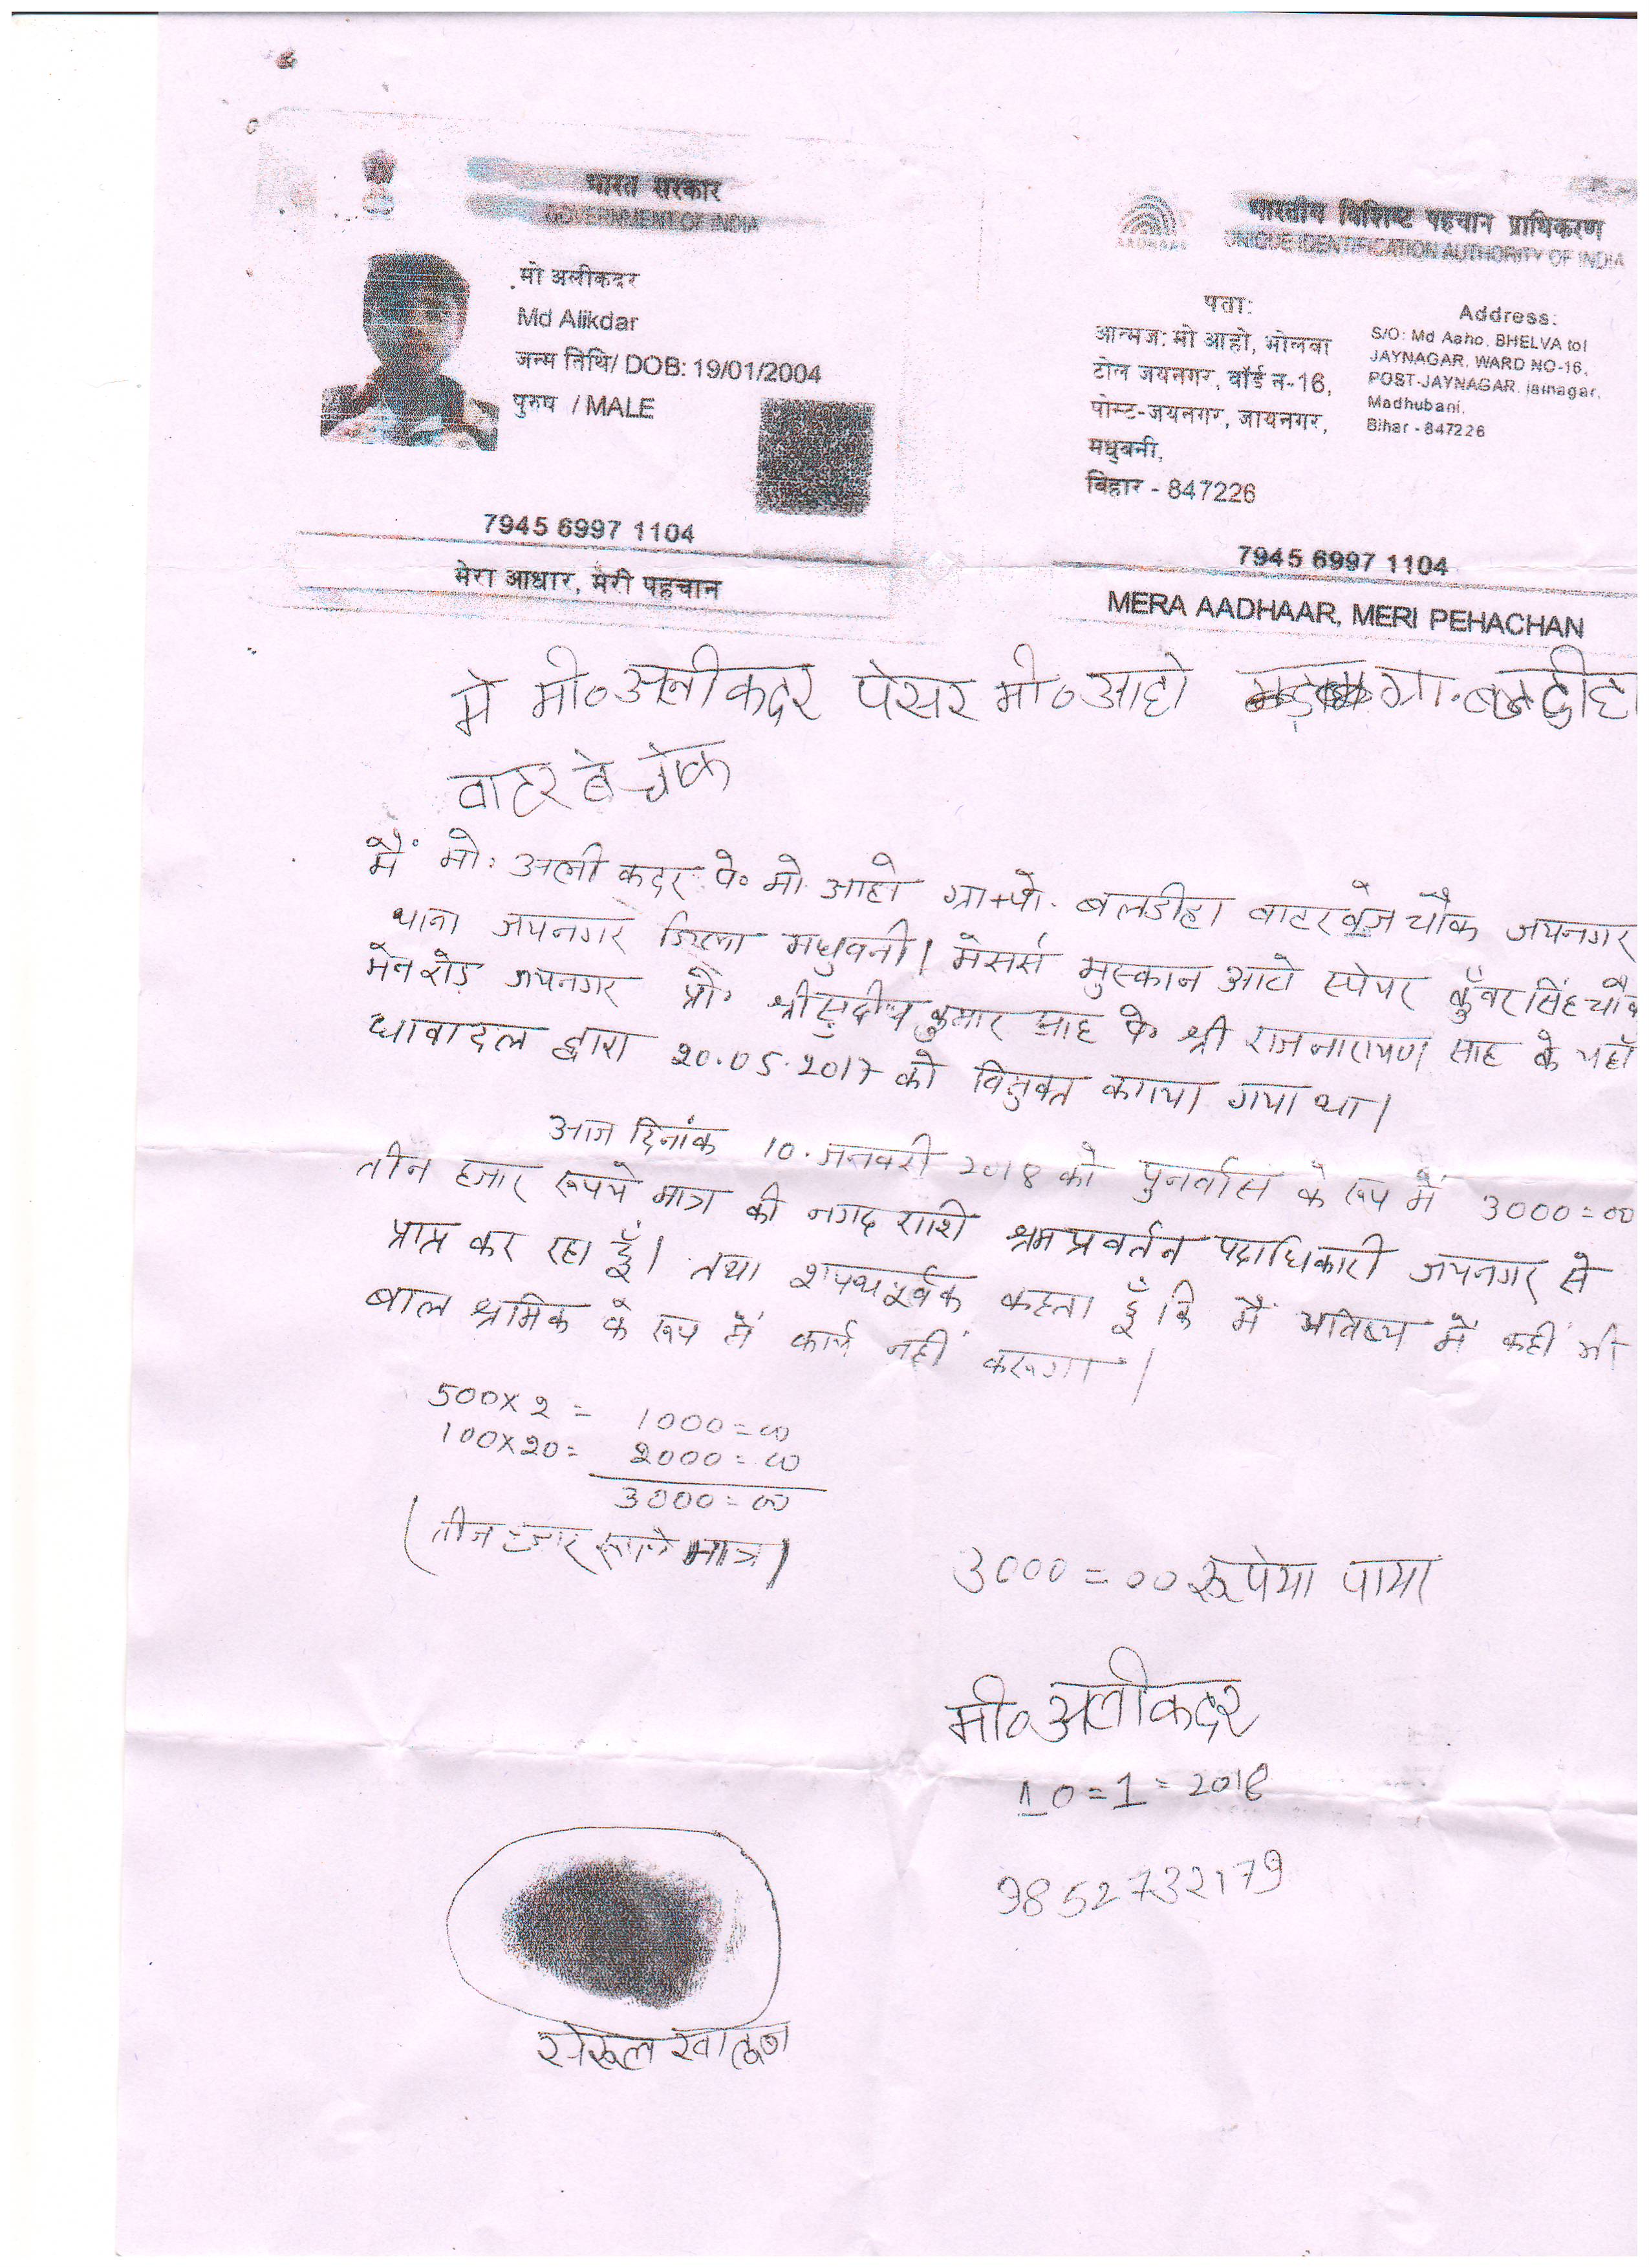 भारत सरकार
GOVERNMENT OF INDIA
मो अलीकदर
Md Alikdar
जन्म तिथि/ DOB: 19/01/2004
पुरुष / MALE
7945 6997 1104
मेरा आधार, मेरी पहचान
भारतीय विशिष्ट पहचान प्राधिकरण
UNIQUE IDENTIFICATION AUTHORITY OF INDIA
AADHAAR
पता:
आत्मज: मो आहो, भोलवा
टोल जयनगर, वॉर्ड न-16,
पोस्ट-जयनगर, जायनगर,
मधुबनी,
बिहार - 847226
Address:
S/O: Md Aaho, BHELVA tol
JAYNAGAR, WARD NO-16,
POST-JAYNAGAR, jainagar,
Madhubani,
Bihar - 847226
7945 6997 1104
MERA AADHAAR, MERI PEHACHAN
मे मो० अलीकदर पेसर मो० आहो ग्रा.
वाटर बे चोक
मैं मो. अली कदर पे० मो. आहो ग्रा+पो. बलडीहा वाटर वेज चौक जयनगर
थाना जयनगर जिला मधुबनी। मेसर्स मुस्कान आटो स्पेयर कुँवर सिंह चौक
मेन रोड जयनगर प्रो० श्री सुदीप कुमार साह पे० श्री राजनारायण साह के यहाँ
धावादल द्वारा 20.05.2017 को विमुक्त कराया गया था।
आज दिनांक 10.जनवरी 2018 को पुनर्वास के रूप में 3000=00
तीन हजार रूपये मात्र की नगद राशि श्रम प्रवर्तन पदाधिकारी जयनगर से
प्राप्त कर रहा हूँ। तथा शपथपूर्वक कहता हूँ कि मैं भविष्य में कहीं भी
बाल श्रमिक के रूप में कार्य नहीं करूगा।
500x2= 1000=00
100x20= 2000=00
3000=00
(तीन हजार रूपये मात्र)
3000=00 रूपेया पाया
मो० अलीकदर
10=1=2018
9852732179
खातुन